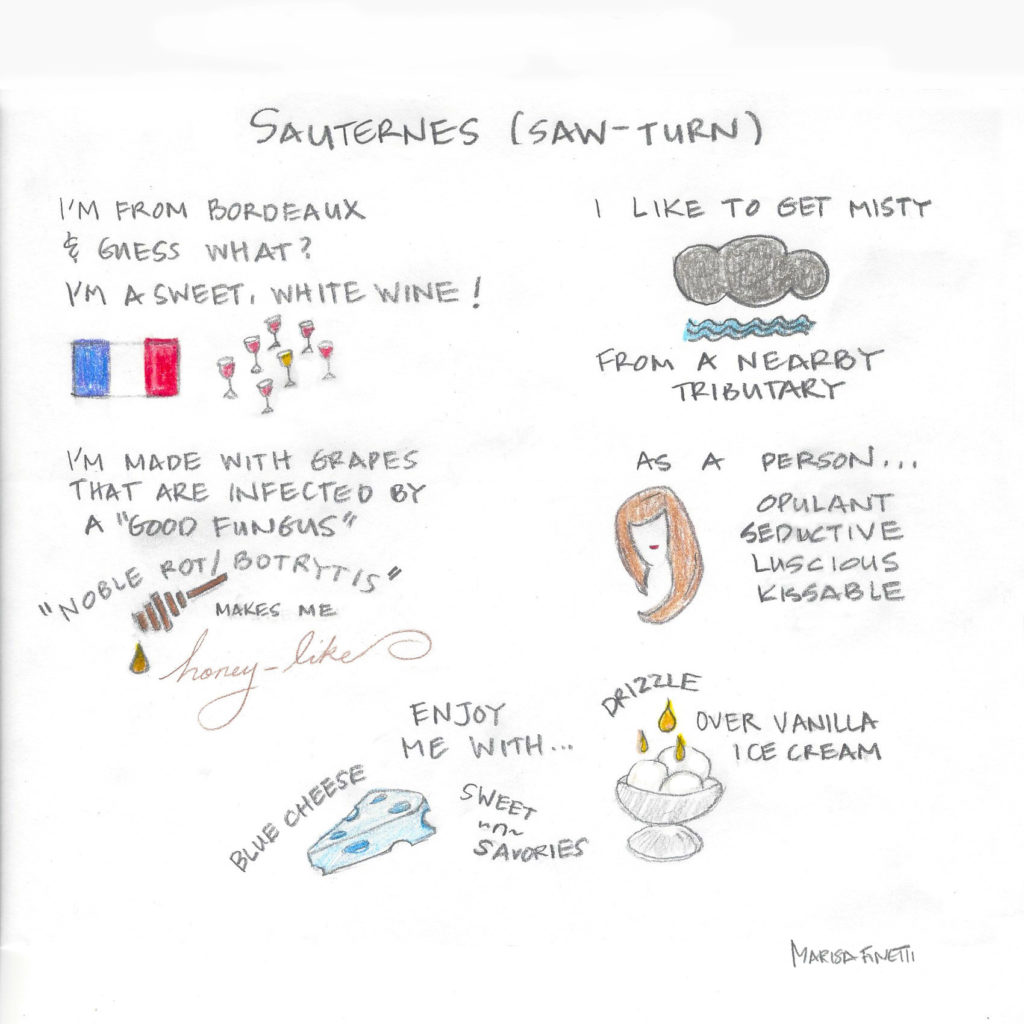 SAUTERNES (SAW-TURN)
I'M FROM BORDEAUX
& GUESS WHAT?
I'M A SWEET, WHITE WINE!
I LIKE TO GET MISTY
FROM A NEARBY
TRIBUTARY
I'M MADE WITH GRAPES
THAT ARE INFECTED BY
A "GOOD FUNGUS"
"NOBLE ROT/BOTRYTIS"
MAKES ME
honey-like
AS A PERSON...
OPULANT
SEDUCTIVE
LUSCIOUS
KISSABLE
ENJOY
ME WITH...
BLUE CHEESE
SWEET
~n~
SAVORIES
DRIZZLE
OVER VANILLA
ICE CREAM
MARISA FINETTI